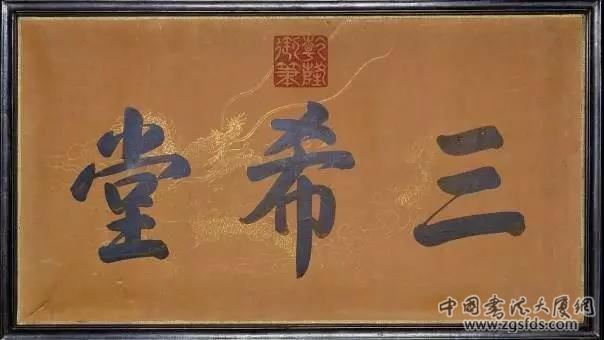 乾隆御筆
三希堂
中国书法大厦網
www.zgsfds.com